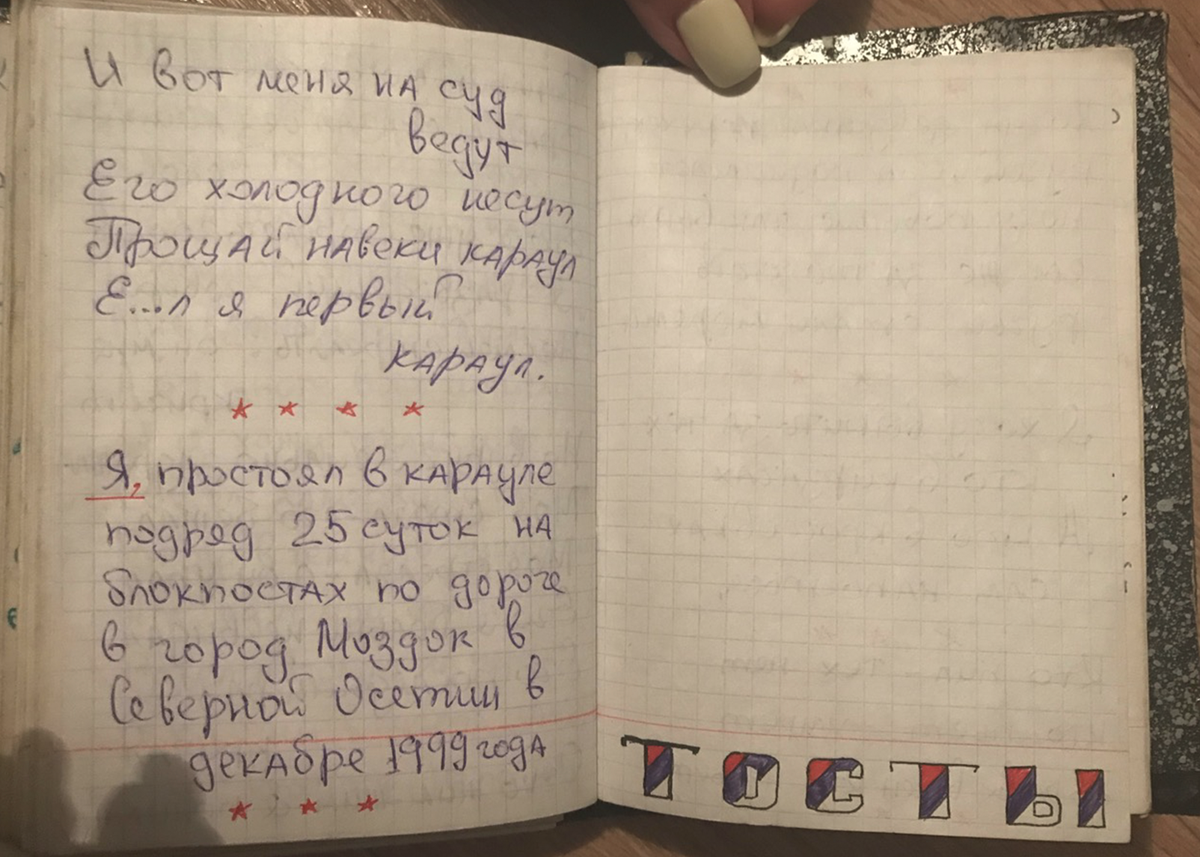 И вот меня на суд
ведут
Его холодного несут
Прощай навеки караул
Е...л я первый
караул.
Я, простоял в карауле
подряд 25 суток на
блокпостах по дороге
в город Моздок в
Северной Осетии в
декабре 1999 года
ТОСТЫ